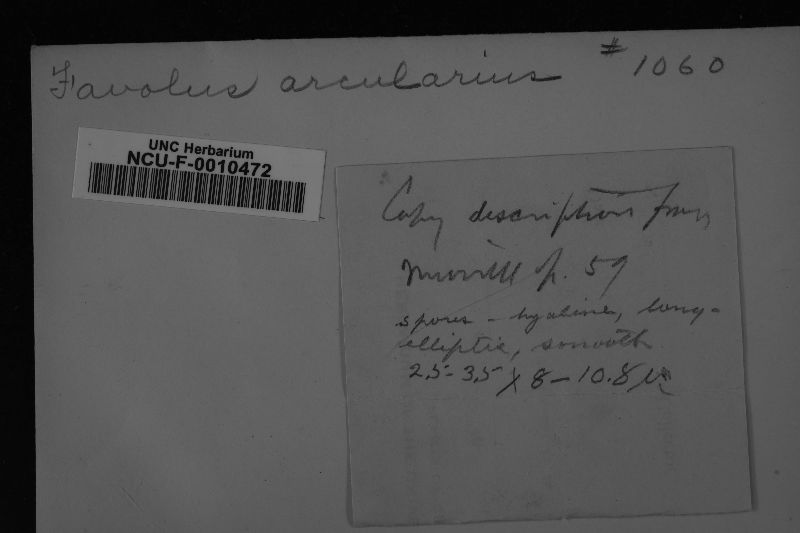 Favolus arcularius #1060
UNC Herbarium
NCU-F-0010472
Copy description from
Murrill p. 59
spores - hyaline, long-
elliptic, smooth
2.5-3.5 x 8-10.8 µ